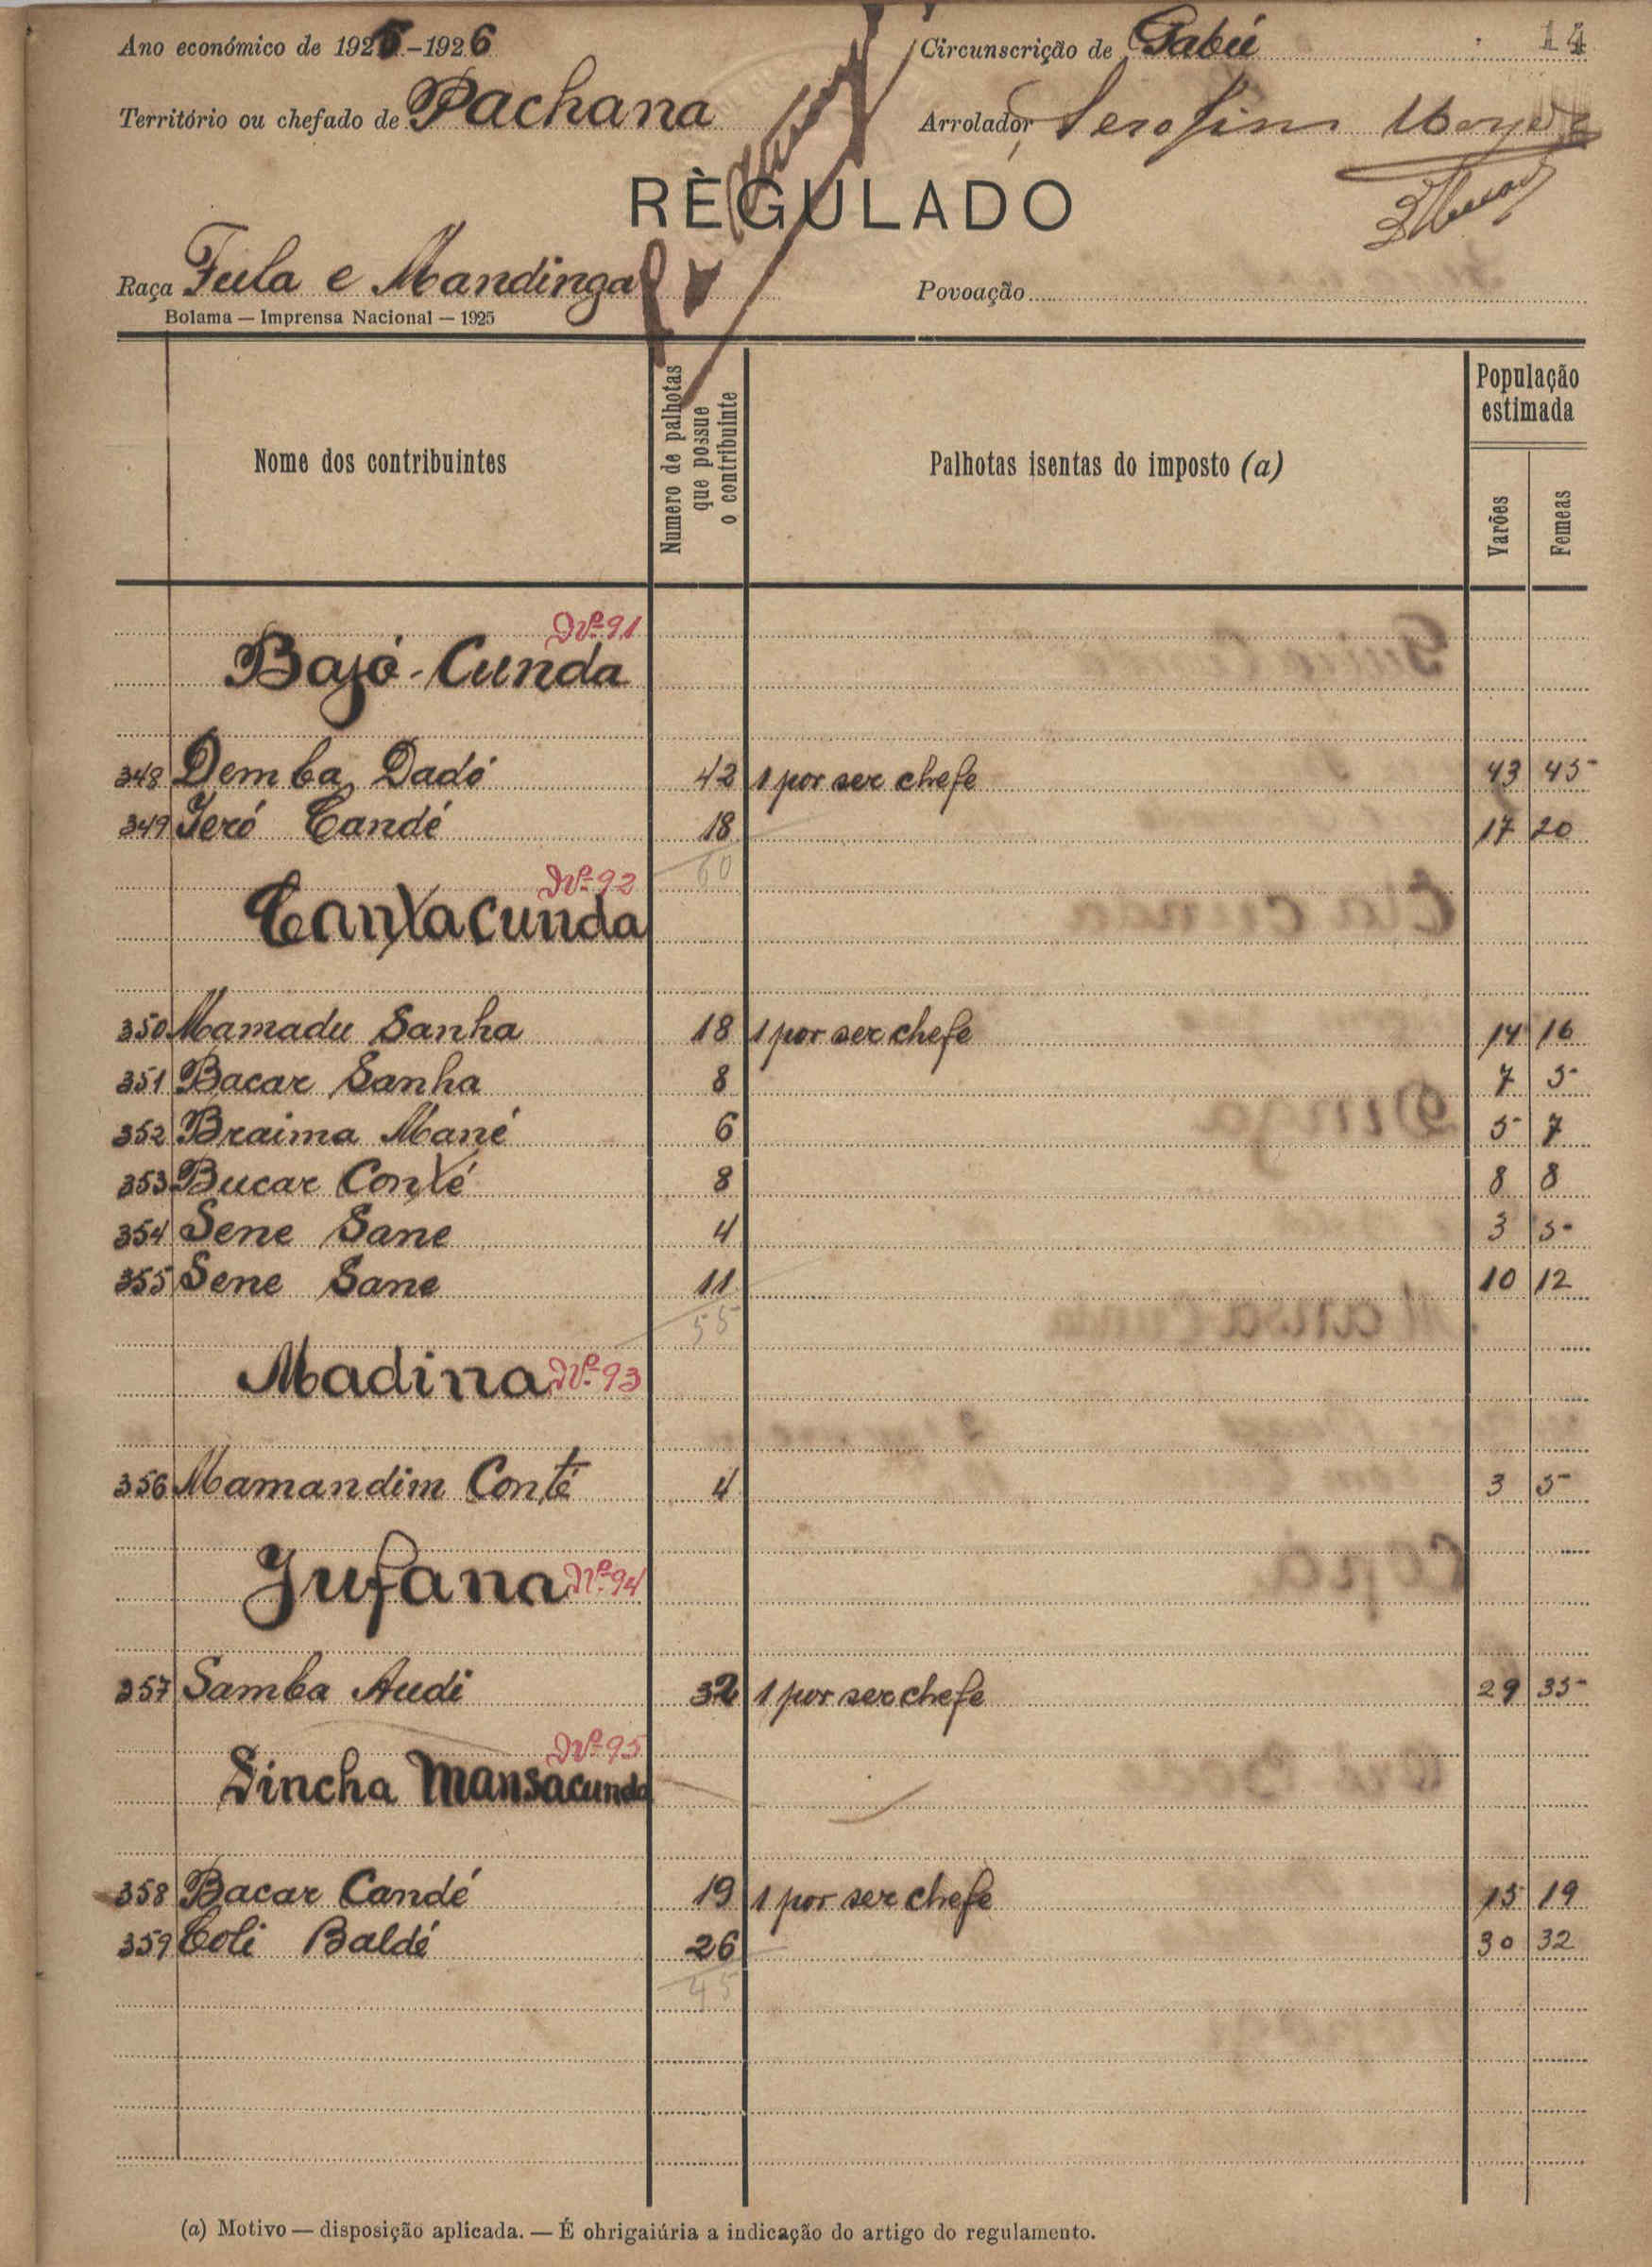 Ano económico de 1925-1926 Circunscrição de Gabú 14
Território ou chefado de Pachana Arrolador, Serafim
RÈGULADO
Raça Fula e Mandinga Povoação
Bolama — Imprensa Nacional — 1925
Nome dos contribuintes
Numero de palhotas que possue o contribuinte
Palhotas isentas do imposto (a)
População estimada
Varões
Femeas
Nº 91
Bajó-Cunda
348 Demba Dadó 42 1 por ser chefe 43 45
349 Jeró Candé 18 17 20
60
Nº 92
Canxacunda
350 Mamadu Sanha 18 1 por ser chefe 14 16
351 Bacar Sanha 8 7 5
352 Braima Mané 6 5 7
353 Bucar Conté 8 8 8
354 Sene Sane 4 3 5
355 Sene Sane 11 10 12
55
Madina Nº 93
356 Mamandim Conté 4 3 5
Jufana Nº 94
357 Samba Audi 32 1 por ser chefe 29 35
Nº 95
Sincha Mansacunda
358 Bacar Candé 19 1 por ser chefe 15 19
359 Coli Baldé 26 30 32
45
(a) Motivo — disposição aplicada. — É obrigaiúria a indicação do artigo do regulamento.